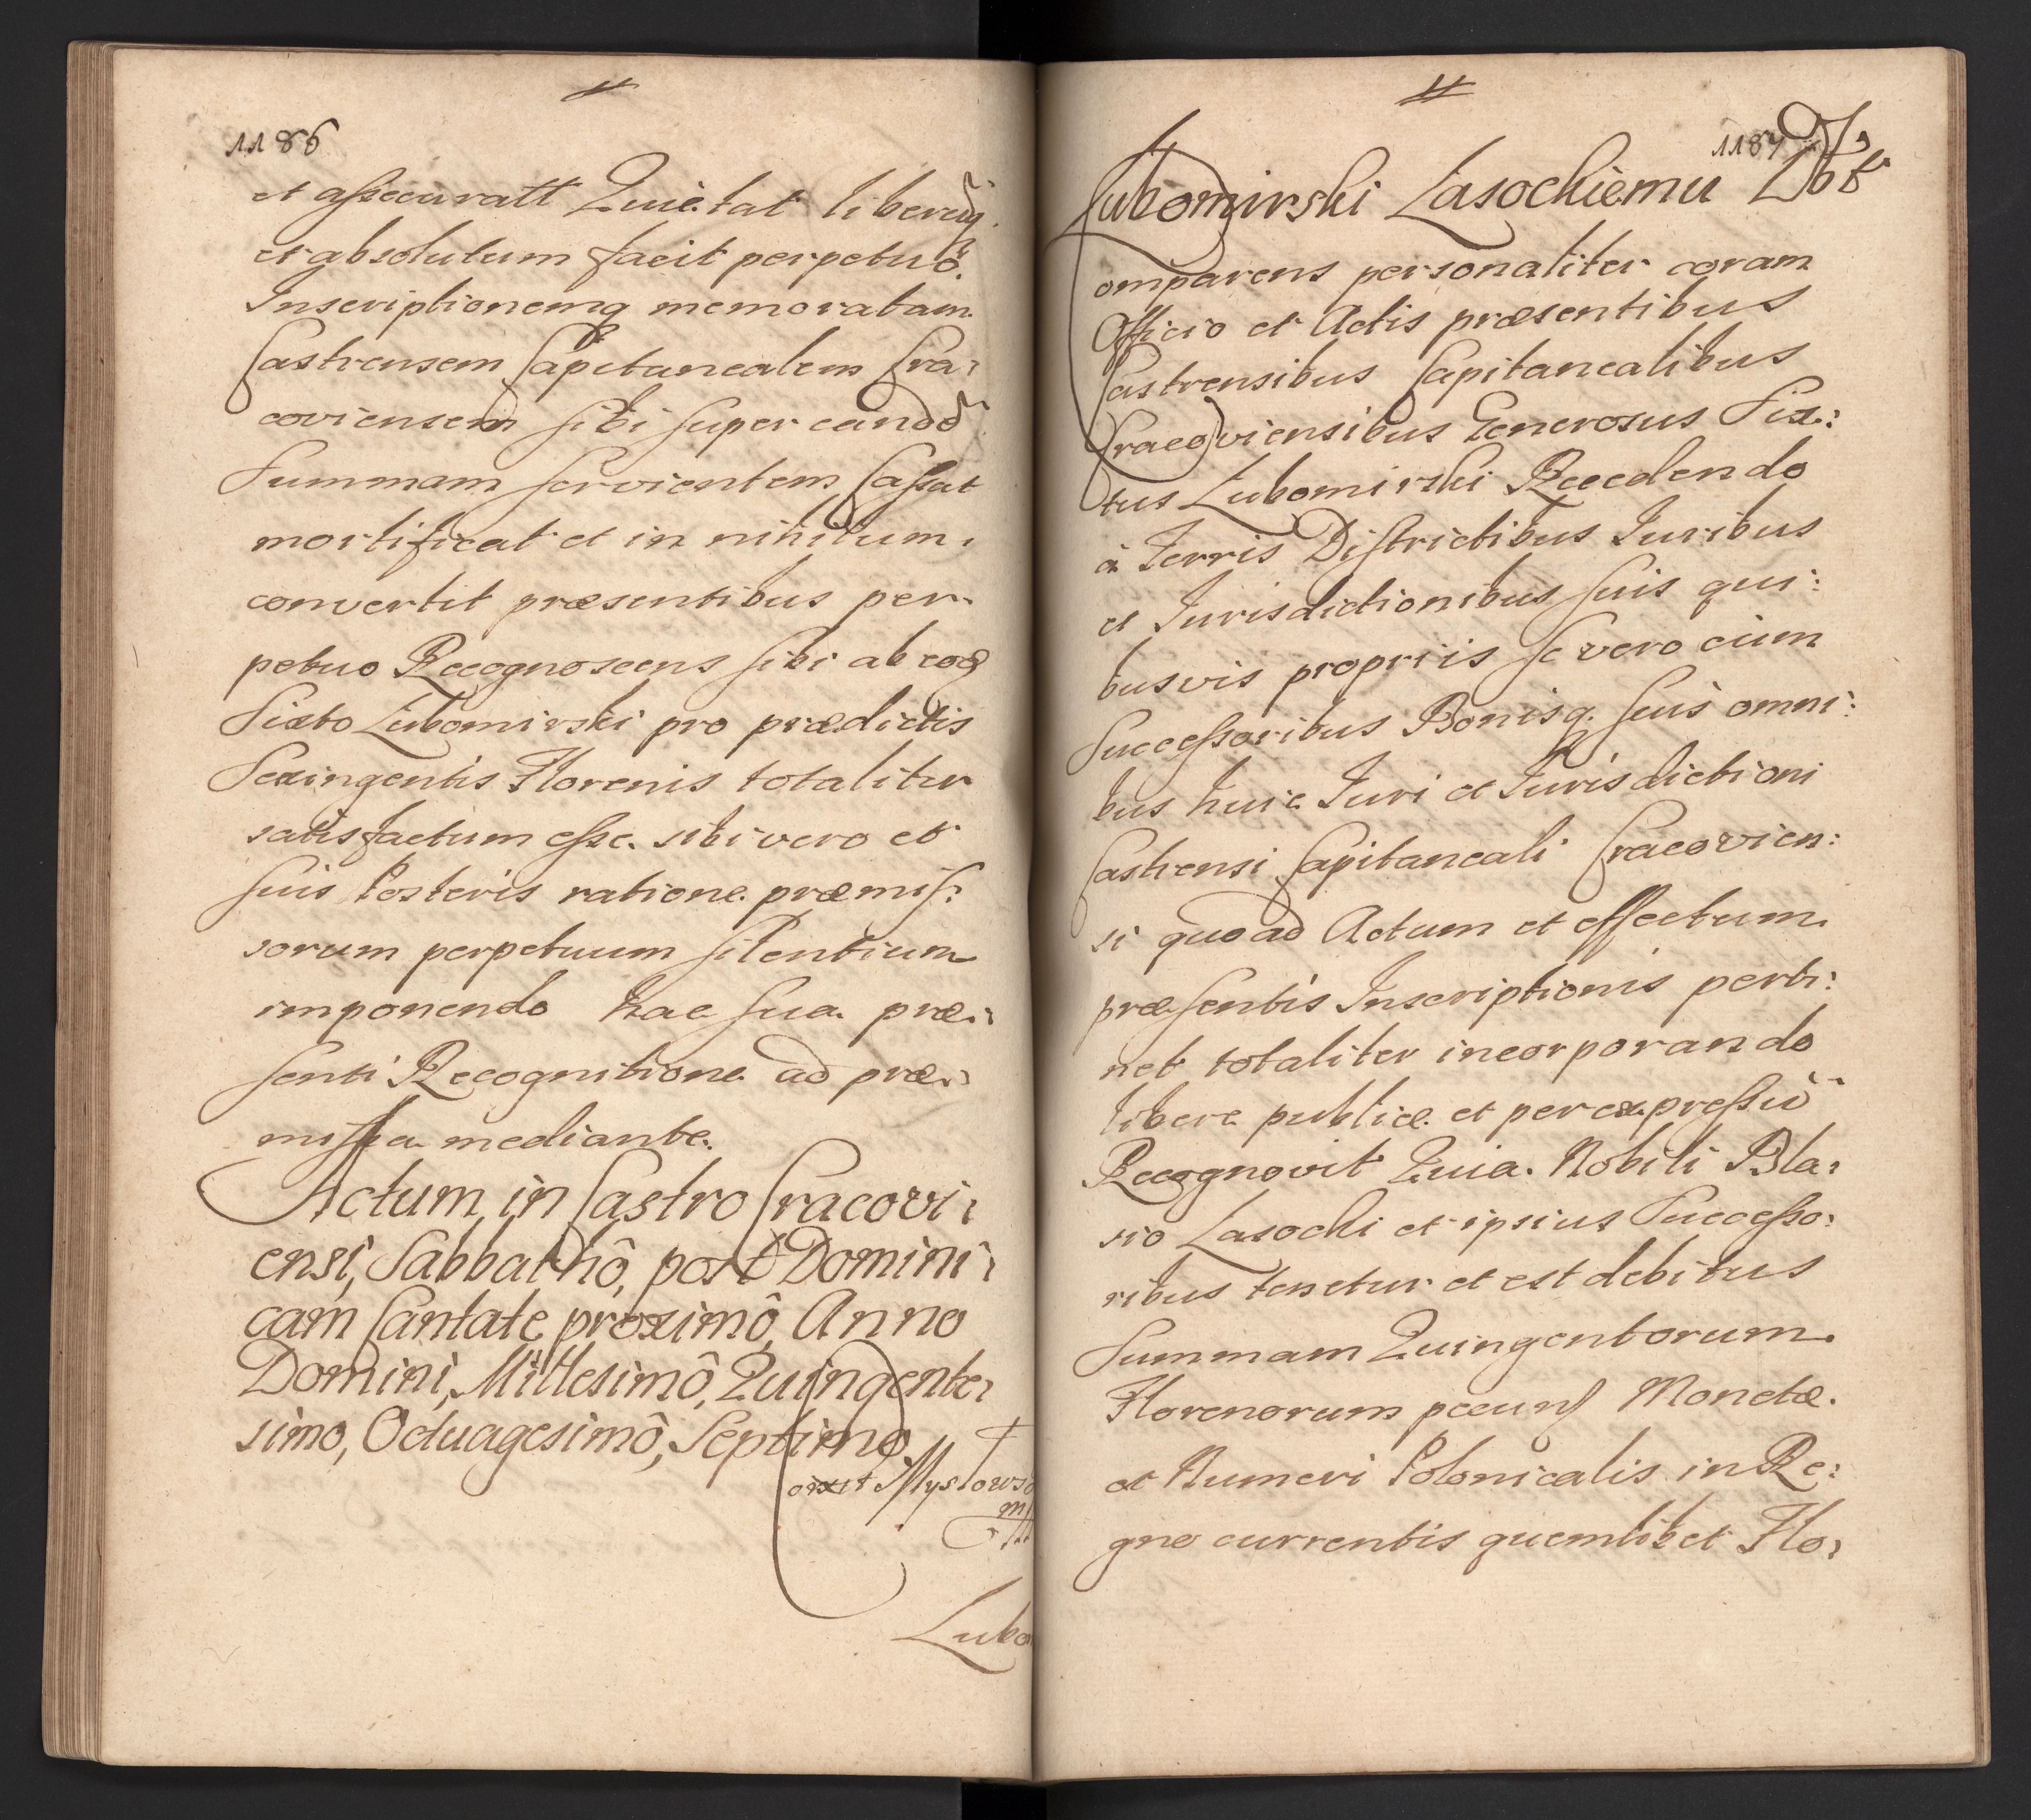 1186
et assecuratt Quietat liberūq.
et absolutum facit perpetuō.
Inscriptionemq memoratam
Castrensem Capitanealem Cra:
coviensem sibi super eandē
Summam servientem Cassat
mortificat et in nihilum
convertit præsentibus per
petuo Recognoscens sibi ab eod
Sixto Lubomirski pro prædictis
Sexingentis Florenis totaliter
satisfactum esse. sibi vero et
suis Posteris ratione præmis:
sorum perpetuum silentium
imponendo hac sua præ:
senti Recognitione ad præ:
missa mediante.
Actum in Castro Cracovi:
ensi, Sabbathô, post Domini:
cam Cantate proximô, Anno
Domini, Millesimô, Quingente:
simo, Octuagesimô, Septimo
Lubo
1187
Lubomirski Lasockiemu
Comparens personaliter coram
Officio et Actis præsentibus
Castrensibus Capitanealibus
Cracoviensibus Generosus Six:
tus Lubomirski Recedendo
à Terris Districtibus Iuribus
et Iurisdictionibus suis qui:
busvis propriis se vero cum
Successoribus Bonisq. suis omni:
bus huic Iuri et Iurisdictioni
Castrensi Capitaneali Cracovien:
si quo ad Actum et effectum
præsentis Inscriptionis perti:
net totaliter incorporando
libere publice et per expressū
Recognovit Quia Nobili Bla:
sio Lasocki et ipsius Successo:
ribus tenetur et est debitus
Summam Quingentorum
Florenorum pecun Monetæ
et Numeri Polonicalis in Re:
gno currentis quemlibet Flo: